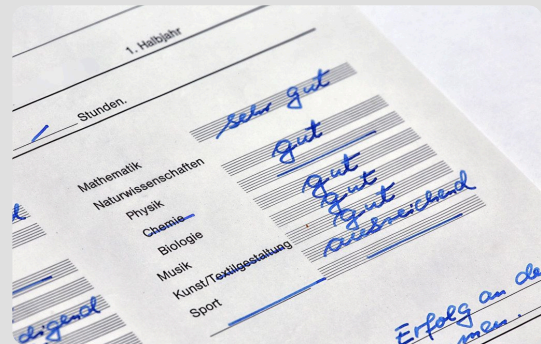 1. Halbjahr
Stunden.
Mathematik sehr gut
Naturwissenschaften gut
Physik
Chemie gut
Biologie gut
Musik gut
Kunst/Textilgestaltung ausreichend
Sport
digend
Erfolg an de
men.